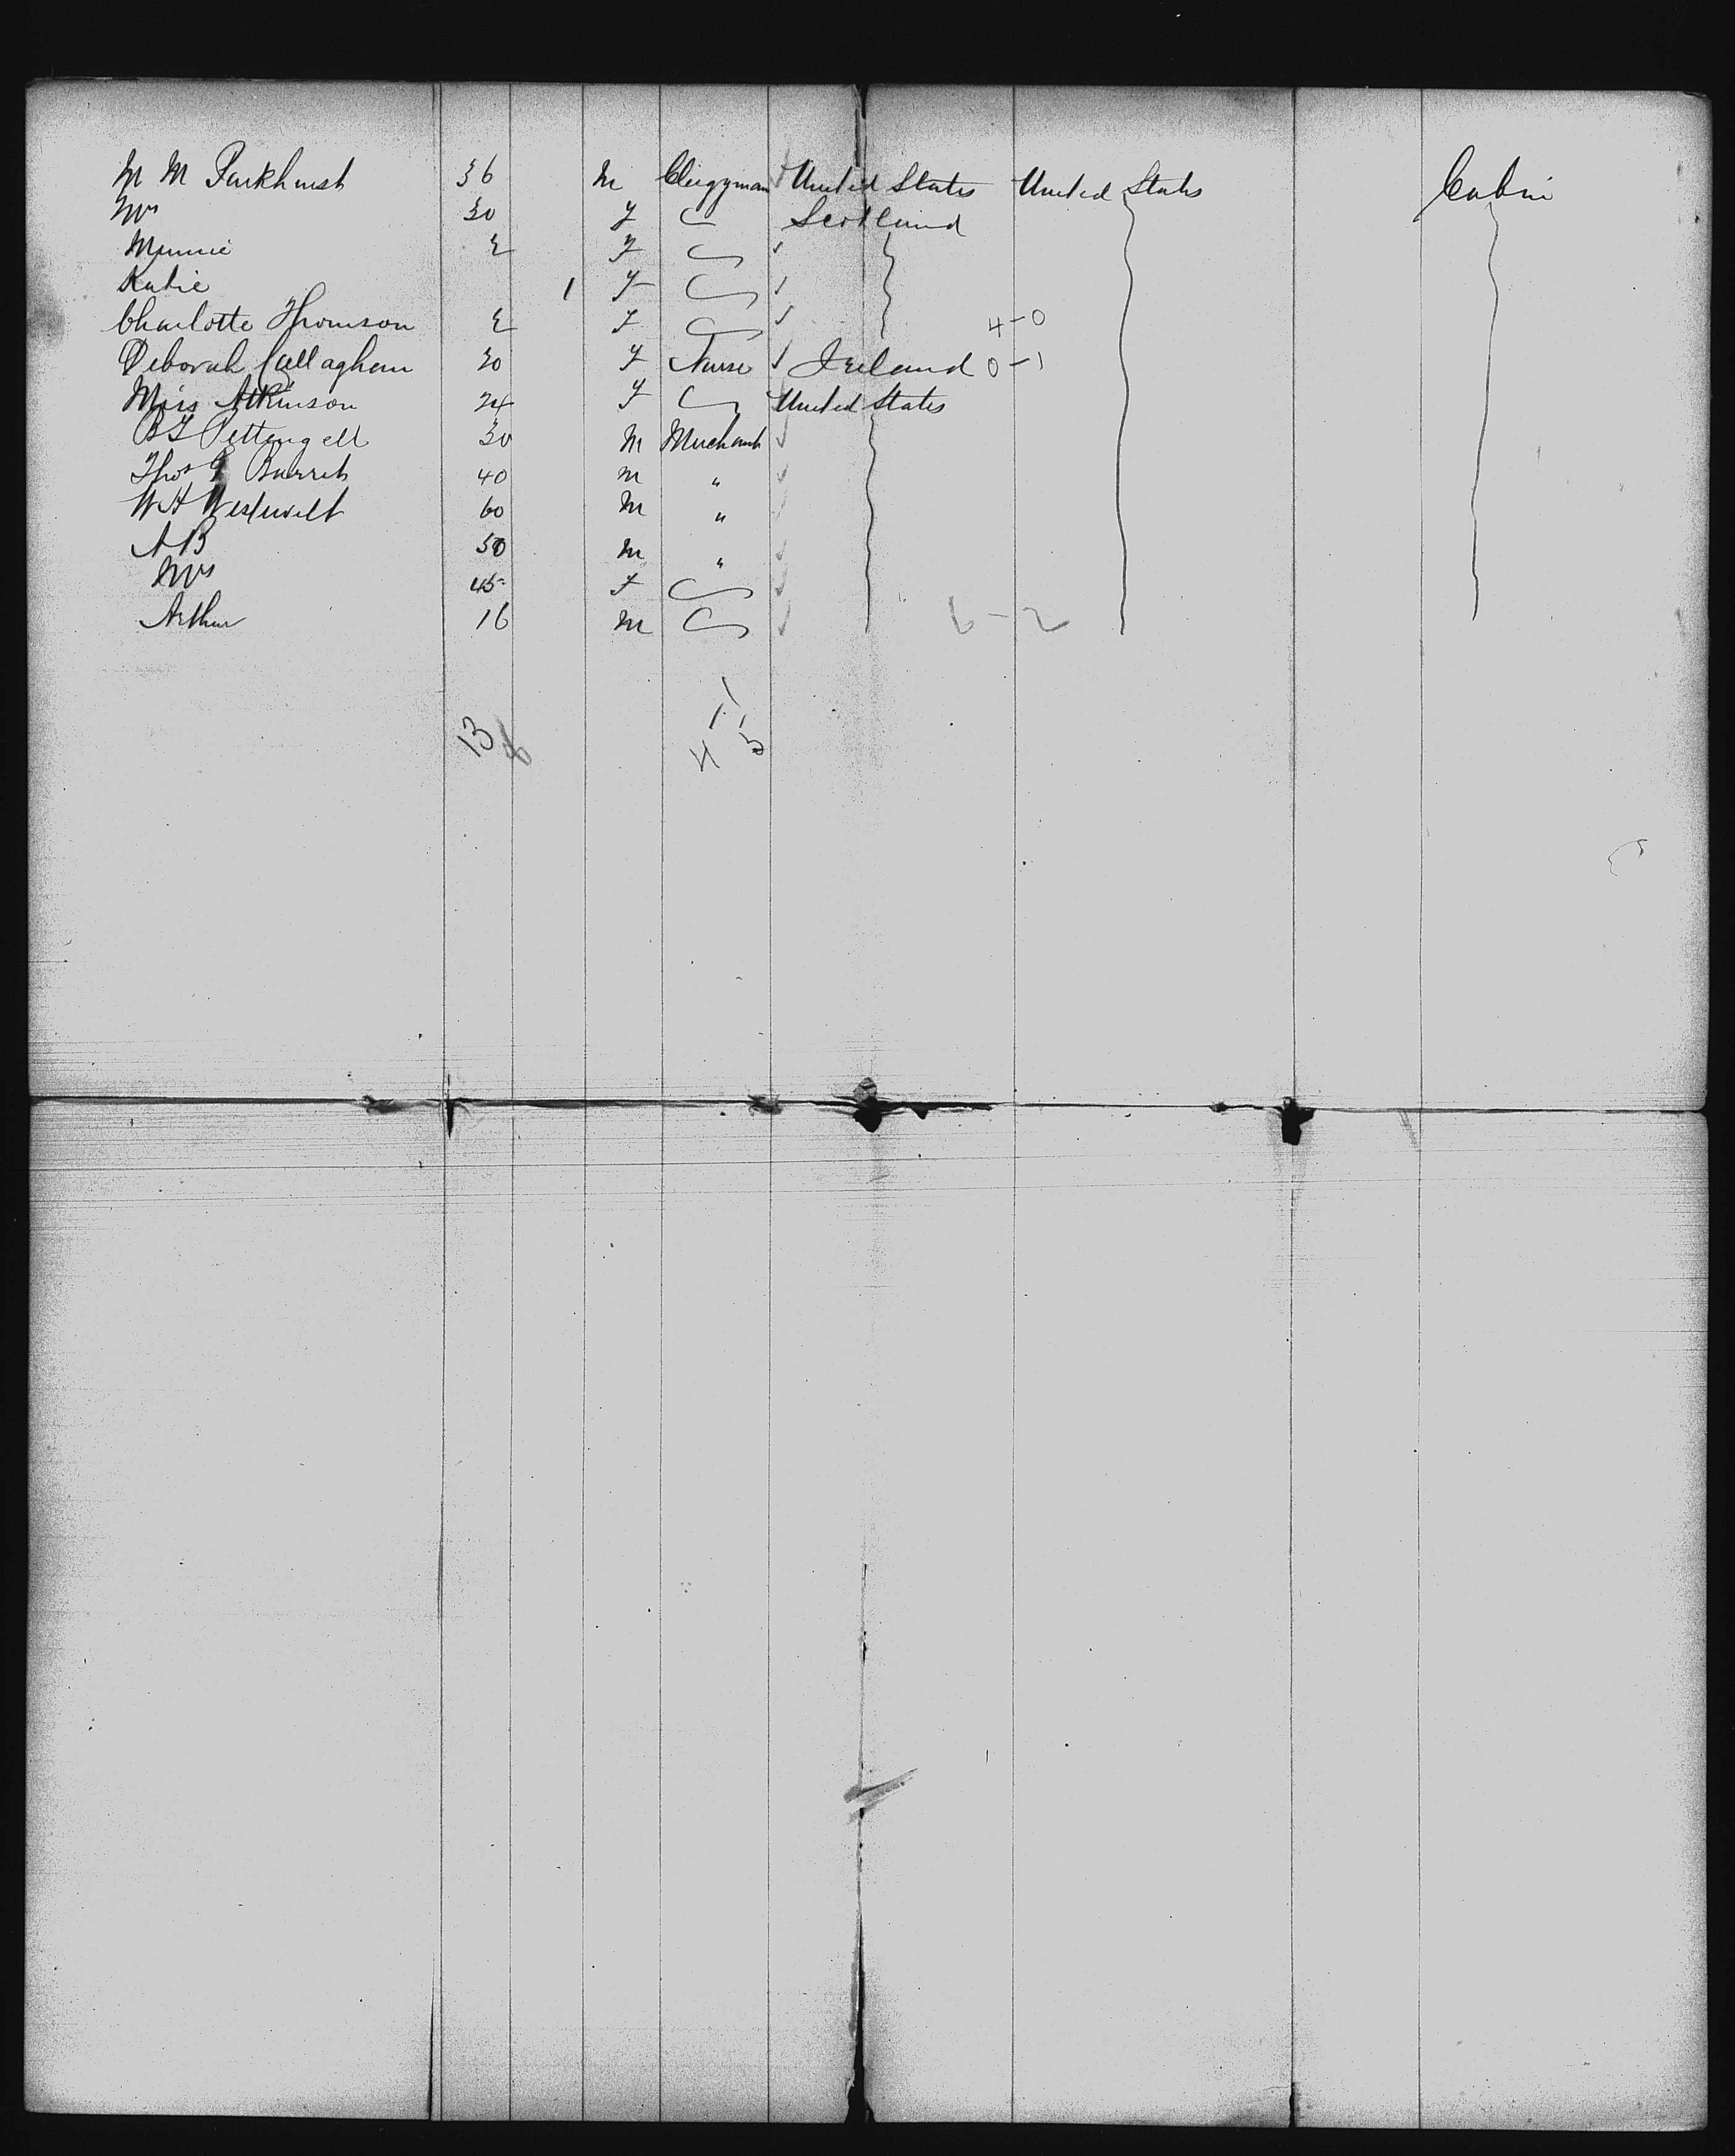 M M Parkhurst 36 M Clergyman United States United States Cabin
Mrs 30 F Scotland
Minnie F
Katie 1 F
Charlotte Thomson F 4-0
Deborah Callaghan 30 F Nurse Ireland 0-1
Miss Atkinson 24 F United States
Pettengell 30 M Merchant
Thos G Barrett 40 M "
W H Westervelt 60 M "
A B 50 M "
Mrs 45 F
Arthur 16 M 6-2
13